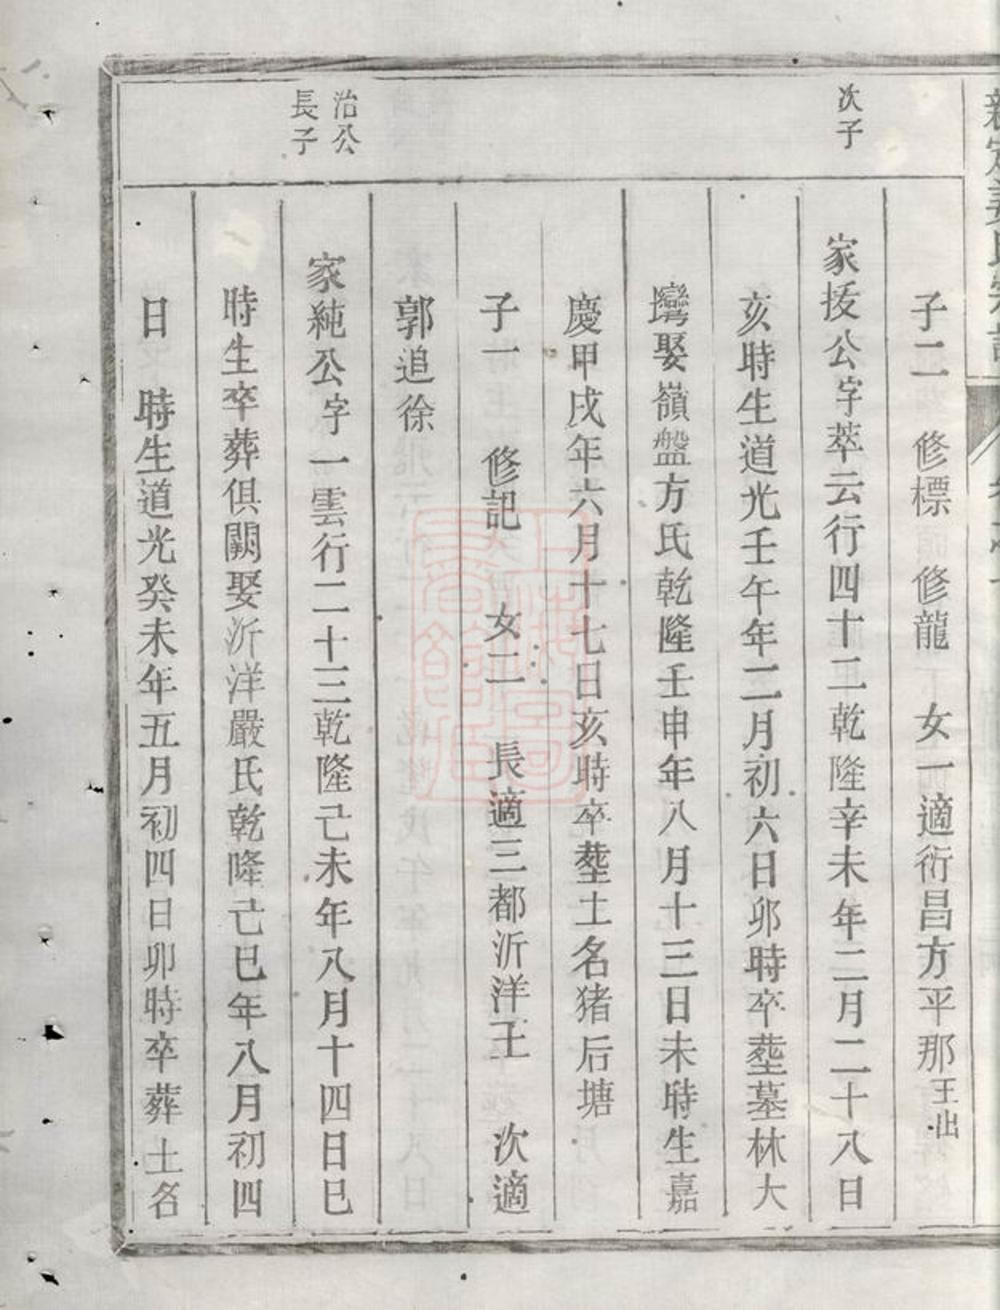 子二　修標　修龍　女一適衍昌方平那王出
次子
家技公字萃云行四十二乾隆辛未年二月二十八日
亥時生道光壬午年二月初六日卯時卒塟墓林大
塆娶嶺盤方氏乾隆壬申年八月十三日未時生嘉
慶甲戌年六月十七日亥時卒塟土名猪后塘
子一　修記　女二　長適三都沂洋王　次適
郭追徐
治公
長子
家純公字一雲行二十三乾隆己未年八月十四日巳
時生卒葬俱闕娶沂洋嚴氏乾隆己巳年八月初四
日　時生道光癸未年五月初四日卯時卒葬土名